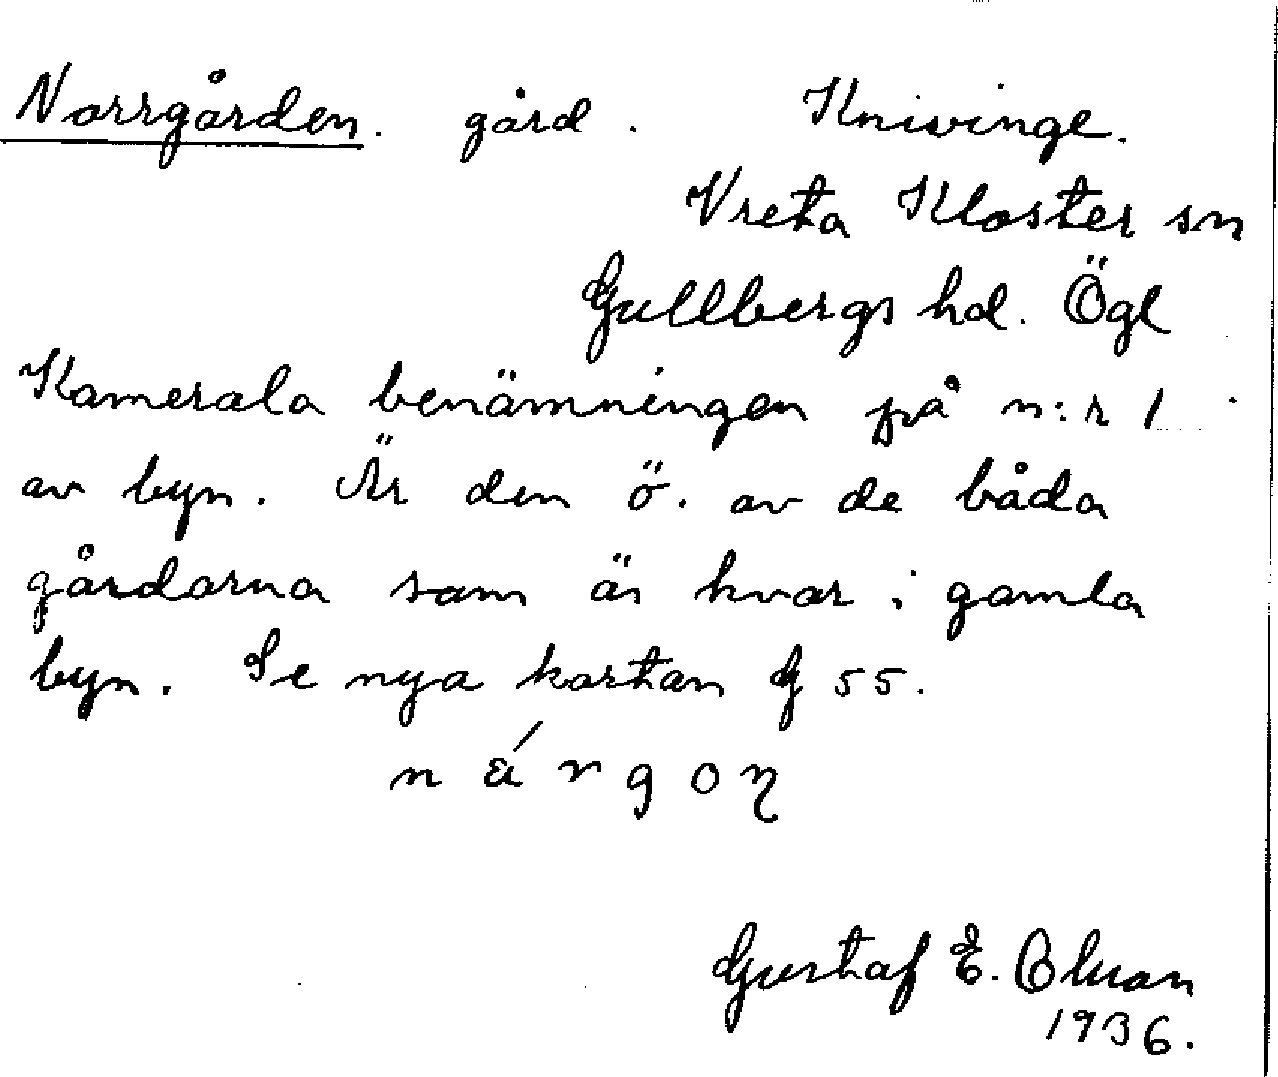 Norrgården. gård. Knivinge.
Vreta Kloster sn
Gullbergs hd. Ögl
Kamerala benämningen på n:r 1
av byn. Är den ö. av de båda
gårdarna som är kvar i gamla
byn. Se nya kartan G 55.
Gustaf E.
1936.